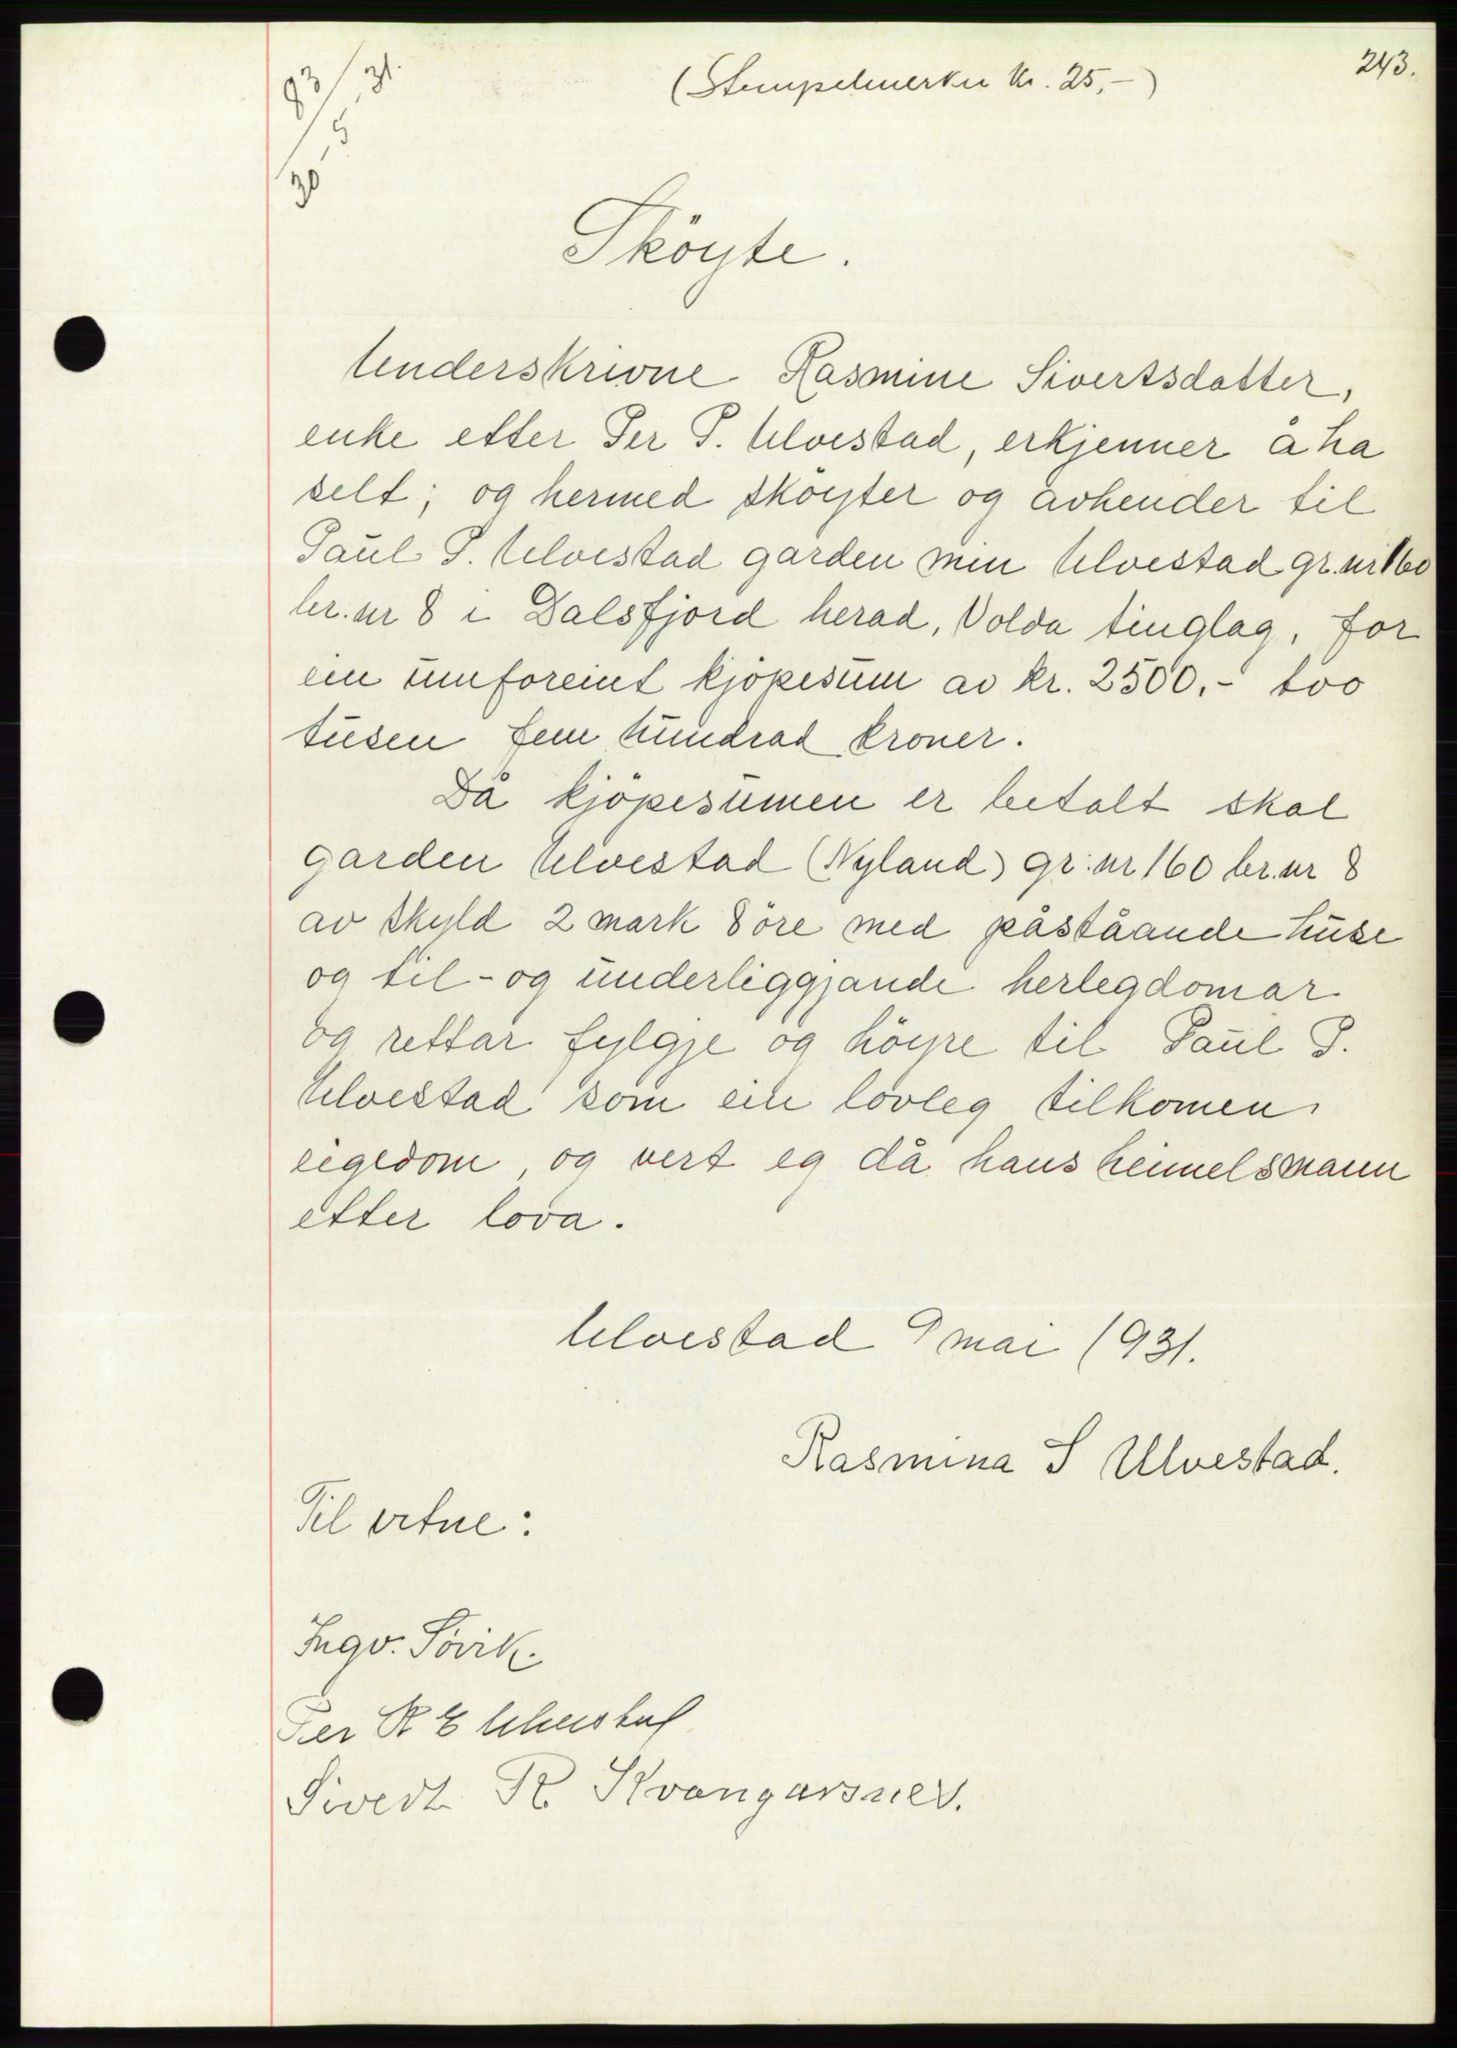 243.
(Stempelmerker kr. 25,-)
93/31.
30/5
Sköyte.
Underskrivne Rasmine Sivertsdatter,
enke etter Per P. Ulvestad, erkjenner å ha
selt; og hermed sköyter og avhender til
Paul P. Ulvestad garden min Ulvestad gr.nr 160
br.nr 8 i Dalsfjord herad, Volda tinglag, for
ein umforeint kjöpesum av kr. 2500.- tvo
tusen fem hundrad kroner.
Då kjöpesumen er betalt skal
garden Ulvestad (Nyland) gr.nr 160 br.nr 8
av skyld 2 mark 8 öre med påståande huse
og til- og underliggjande herlegdomar
og rettar fylgje og höyre til Paul P.
Ulvestad som ein lovleg tilkomen
eigedom, og vert eg då hans heimelsmann
etter lova.
Ulvestad 9 mai 1931.
Rasmina S Ulvestad.
Til vitne:
Ingv. Sövik.
Per R E Ulvestad
Sivert R. Kvangarsnes.